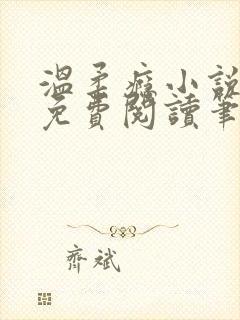 溫柔癮小說
免費閱讀筆
齊斌